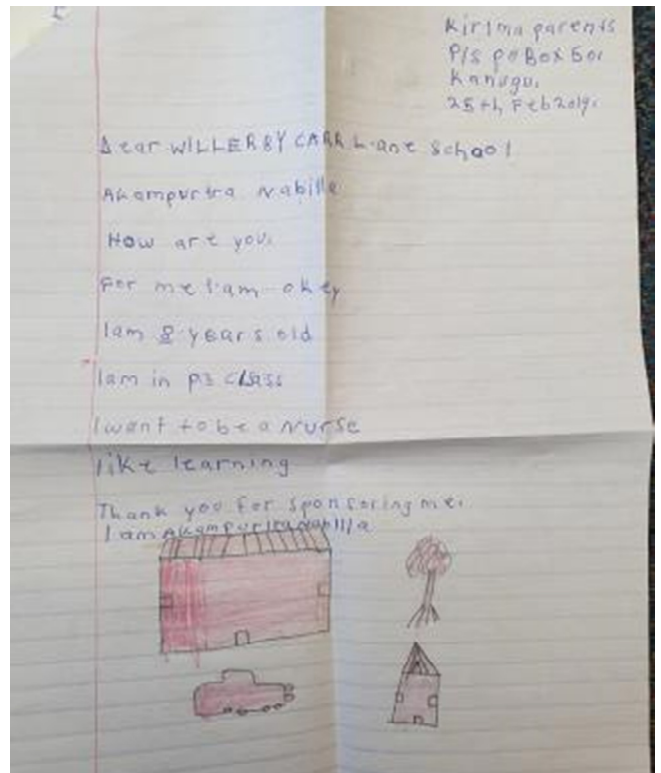 Kirima parents
P/S po Box 501
Kanugu.
25th, Feb 2019.
Dear WILLERBY CARR Lane School
Akampurira Nabilla
How are you.
For me I am okey
I am 8 years old
I am in p3 class
I want to be a nurse
like learning
Thank you for sponsoring me.
I am Akampurira Nabilla